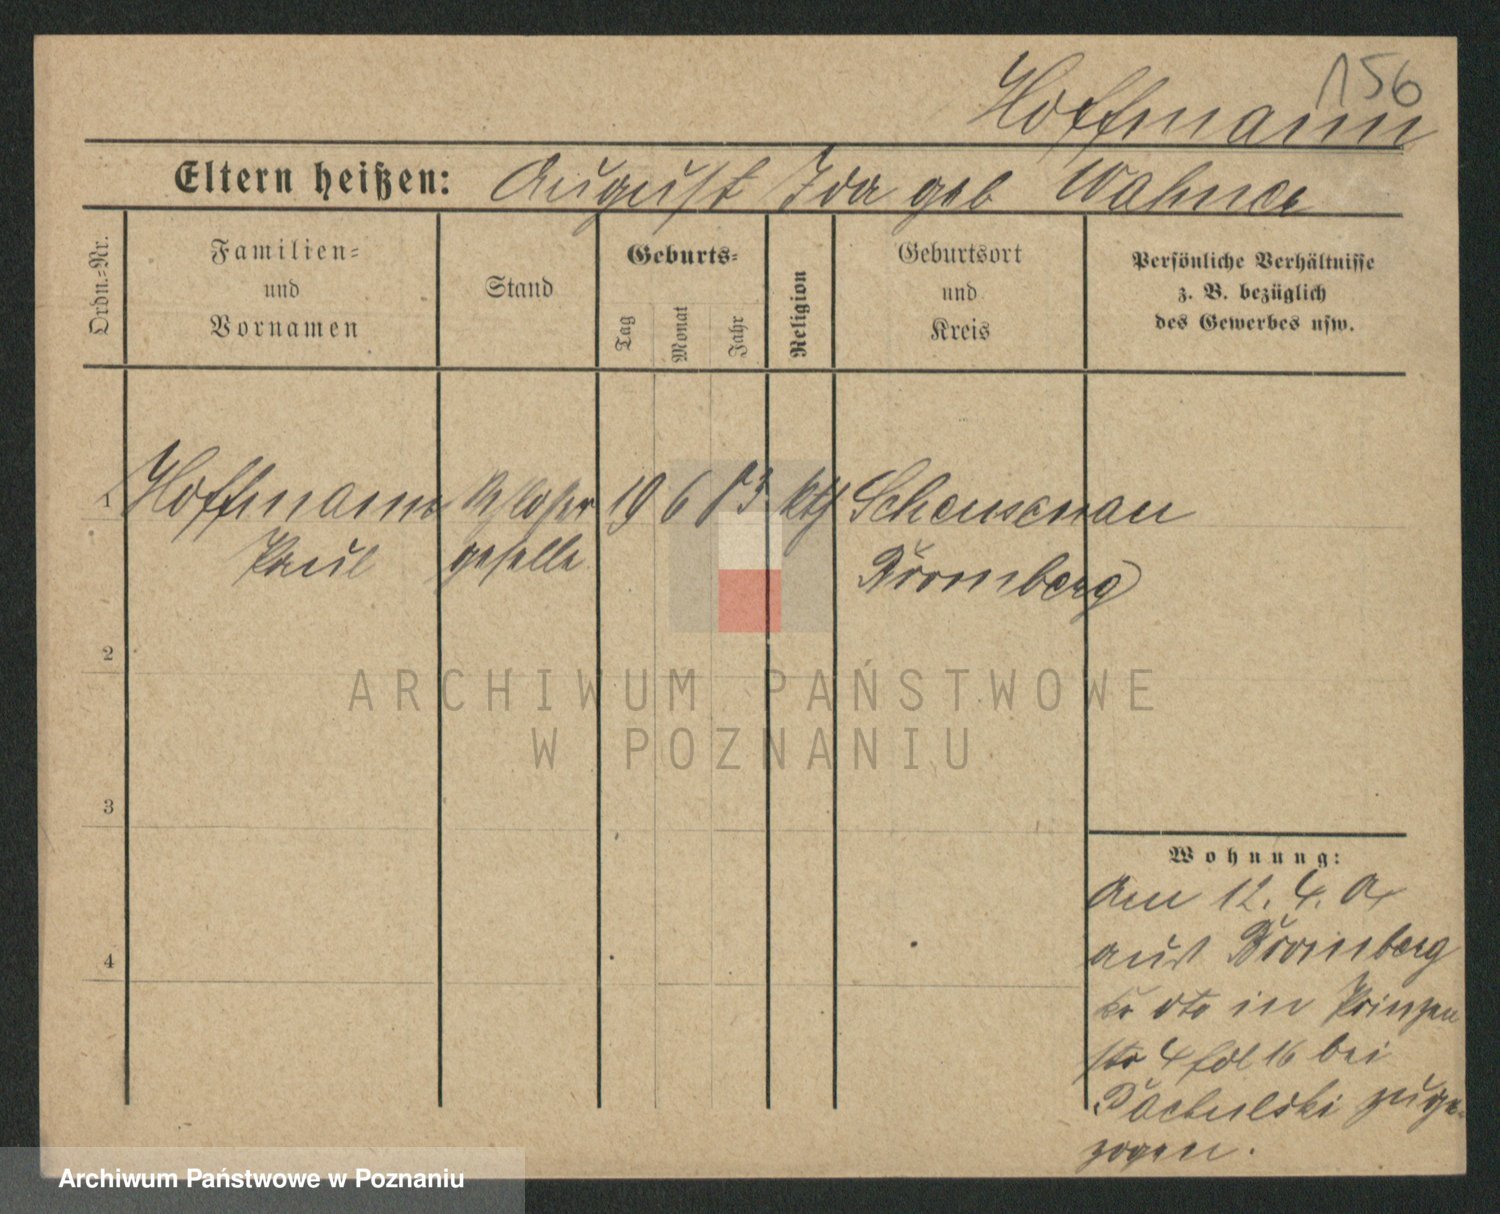 156
Hoffmann
Eltern heißen: August Ida geb Wahnce
Ordn.=Nr.
Familien=
und
Vornamen
Stand
Geburts=
Tag
Monat
Jahr
Religion
Geburtsort
und
Kreis
Persönliche Verhältnisse
z. B. bezüglich
des Gewerbes usw.
1 Hoffmann 19 6 83 kth
Paul geselle Bromberg
2
3
4
Wohnung:
am 12. 4. 04
aus Bromberg
Kr dto in Prinzen
str 4 bei
zuge-
zogen.
ARCHIWUM PAŃSTWOWE
W POZNANIU
Archiwum Państwowe w Poznaniu